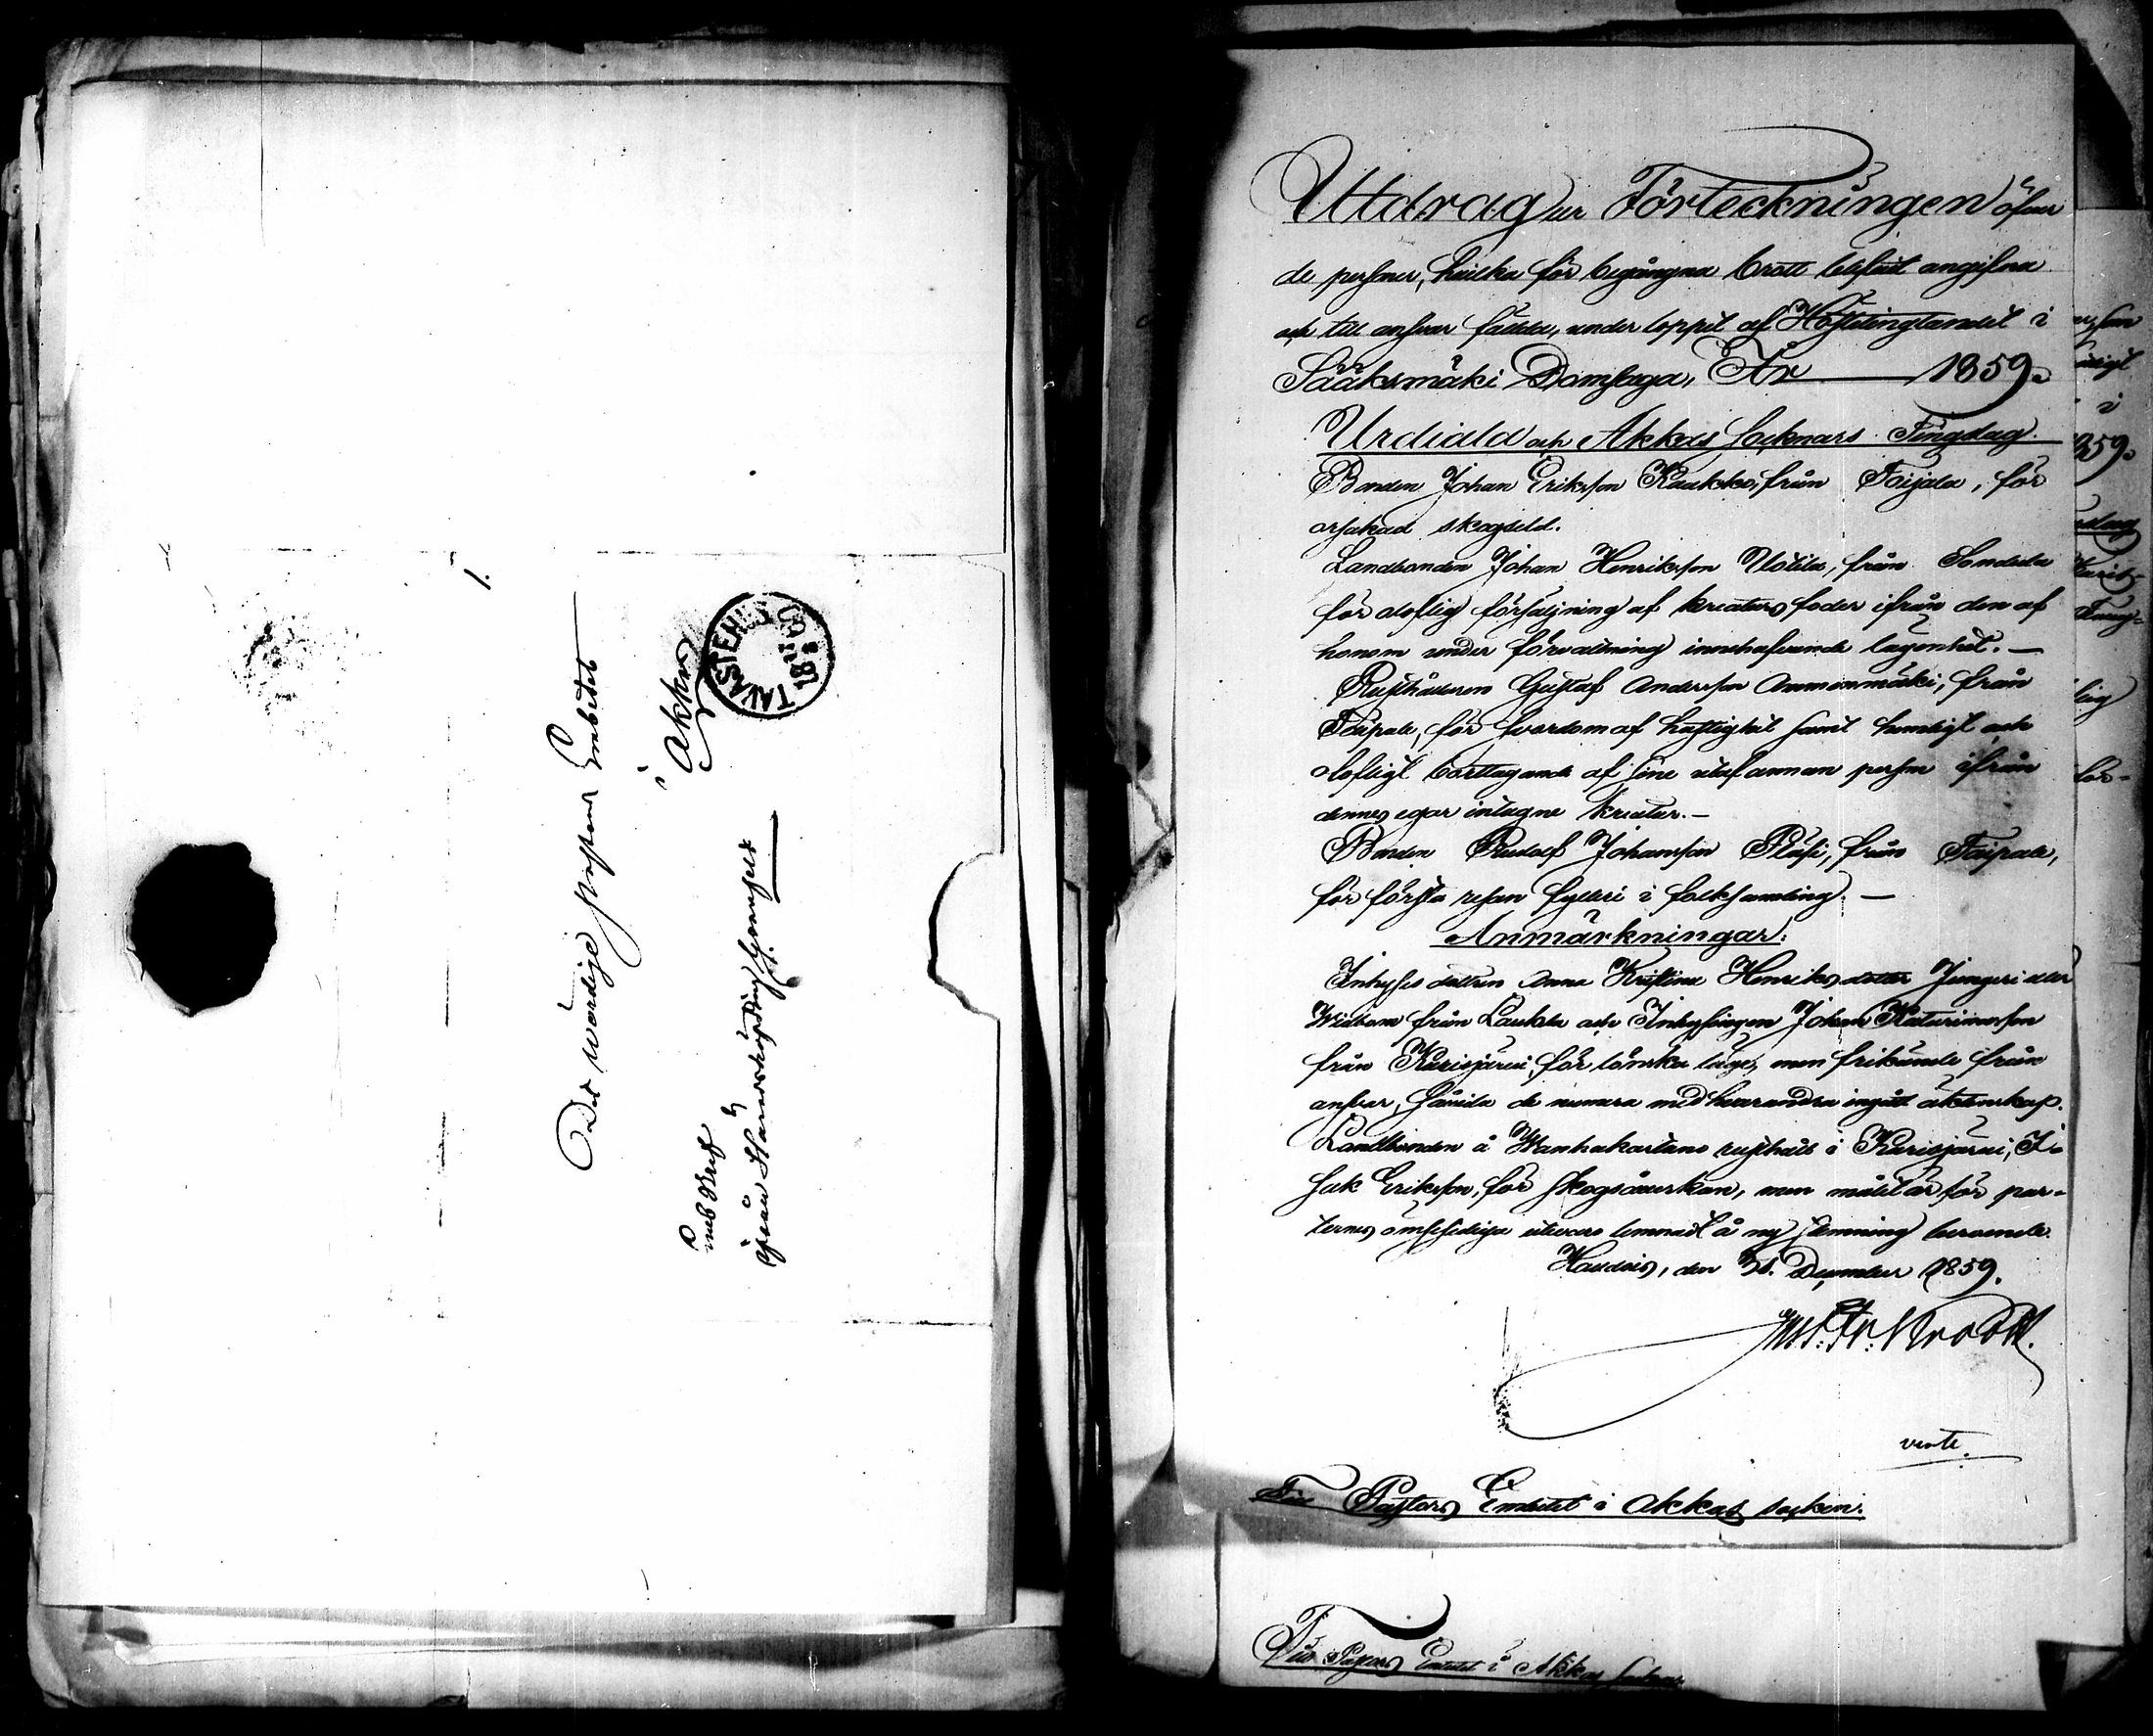 Det wördige Pastors Embetet
i
Akkas
TAVASTEHUS
1860
Utdrag ur Förteckningen öfver
de personer, hvilka för begångna brott blifvit angifna
och till ansvar fällda, under loppet af Höstetingtandet i
Sääksmäki Domsaga, År 1859.
Urdiala och Akkas Socknars Tingslag.
Bonden Johan Eriksson Kaukko, från Toijala, för
orsakad skogseld.
Landbonden Johan Henriksson Uotila, från Sondula
för oloflig försäljning af kreatursfoder ifrån den af
honom under förvaltning innehafvande lägenhet. —
Rusthållaren Gustaf Andersson Ammonmäki, från
Taipale, för svordom af hastighet samt hemligt och
olofligt borttagande af sine utaf annan person ifrån
dennes egor intagne kreatur. —
Bonden Rudolf Johansson Pläsi, från Taipale,
för första resan fylleri i folksamling. —
Anmärkningar:
Inhyses dottren Anna Kristina Henriksdotter Jungeri eller
Widbom från Laukela och Inhysingen Johan Katarinansson
från Kurisjärvi, för lönska läge, men frikände från
ansvar, såvida de numera med hvarandra ingått äktenskap.
Landbonden å Wanhakartano rusthåll i Kurisjärvi, I-
sak Eriksson, för skogsåverkan, men målet är för par-
ternes ömsesidiga utevaro lemnadt å ny stemning beroende.
den 31. December 1859.
verte.
Till Pastors Embetet i Akkas socken.
Till Pastors Embetet i Akkas socken.